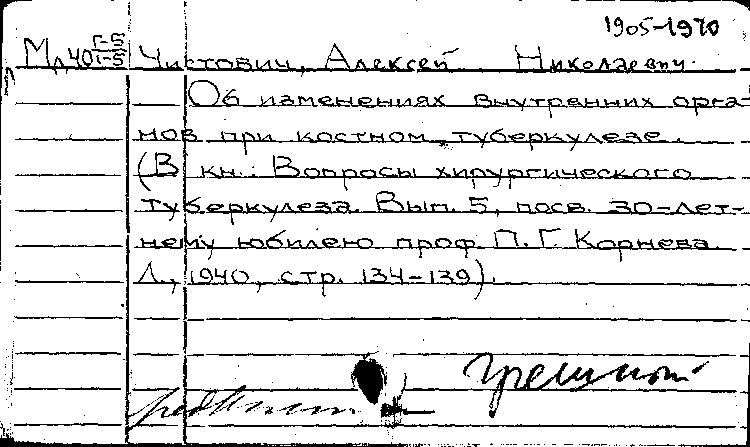 1905-1970
Мл40 Г-5
1-5
Чистович, Алексей Николаевич.
Об изменениях внутренних орга-
нов при костном туберкулезе.
(В кн.: Вопросы хирургического
туберкулеза. Вып. 5, посв. 30-лет-
нему юбилею проф. П. Г. Корнева.
Л., 1940, стр. 134-139).